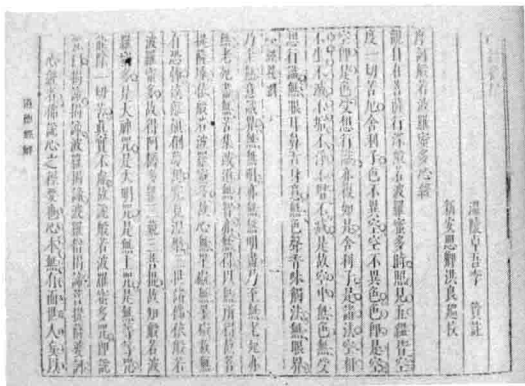 溫陵卓吾李 贄註
新安思鮮洪良校
摩訶般若波羅蜜多心經
觀自在菩薩行深般若波羅蜜多時照見五蘊皆空
度一切苦厄舍利子色不異空空不異色色即是空
空即是色受想行識亦復如是舍利子是諸法空相
不生不滅不垢不淨不增不減是故空中無色無受
想行識無眼耳鼻舌身意無色聲香味觸法無眼界
乃至無意識界無無明亦無無明盡乃至無老死亦
無老死盡無苦集滅道無智亦無得以無所得故菩
提薩埵依般若波羅蜜多故心無罣礙無罣礙故無
有恐怖遠離顛倒夢想究竟涅槃三世諸佛依般若
波羅蜜多故得阿耨多羅三藐三菩提故知般若波
羅蜜多是大神咒是大明咒是無上咒是無等等咒
能除一切苦真實不虛故說般若波羅蜜多咒即說
咒曰揭諦揭諦波羅揭諦波羅僧揭諦菩提薩婆訶
心經者佛說心之徑要也心本無有而世人妄以
道佛經解